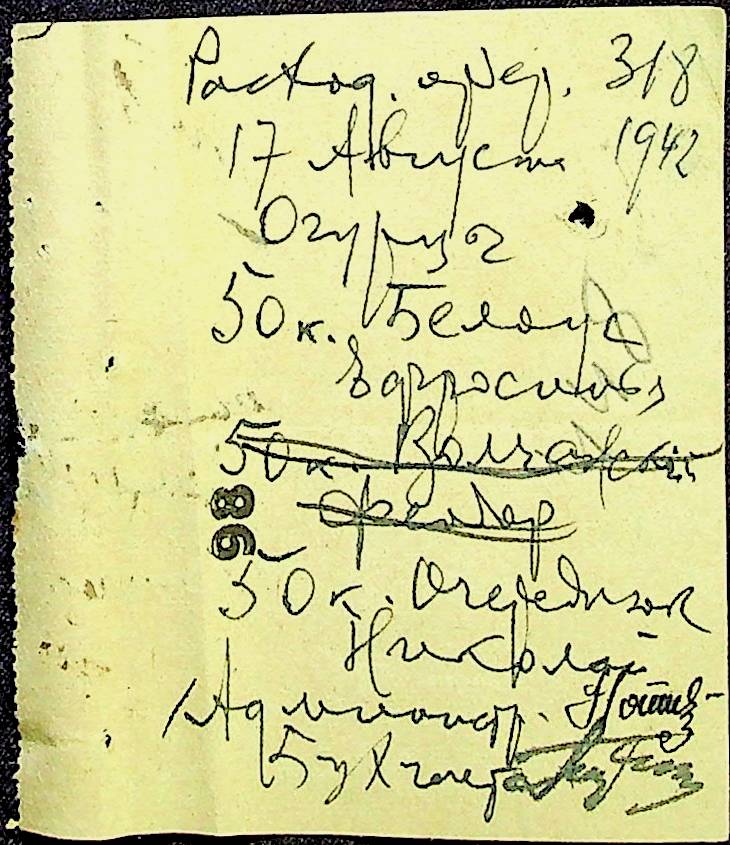 Расход. ордер. 318
17 Августа 1942
Огурцы
50 к. Белоус
Ефросинья
50 к. Волчанский
Федор
98
50 к. Очередник
Николай
Администр.
Бухгалтер